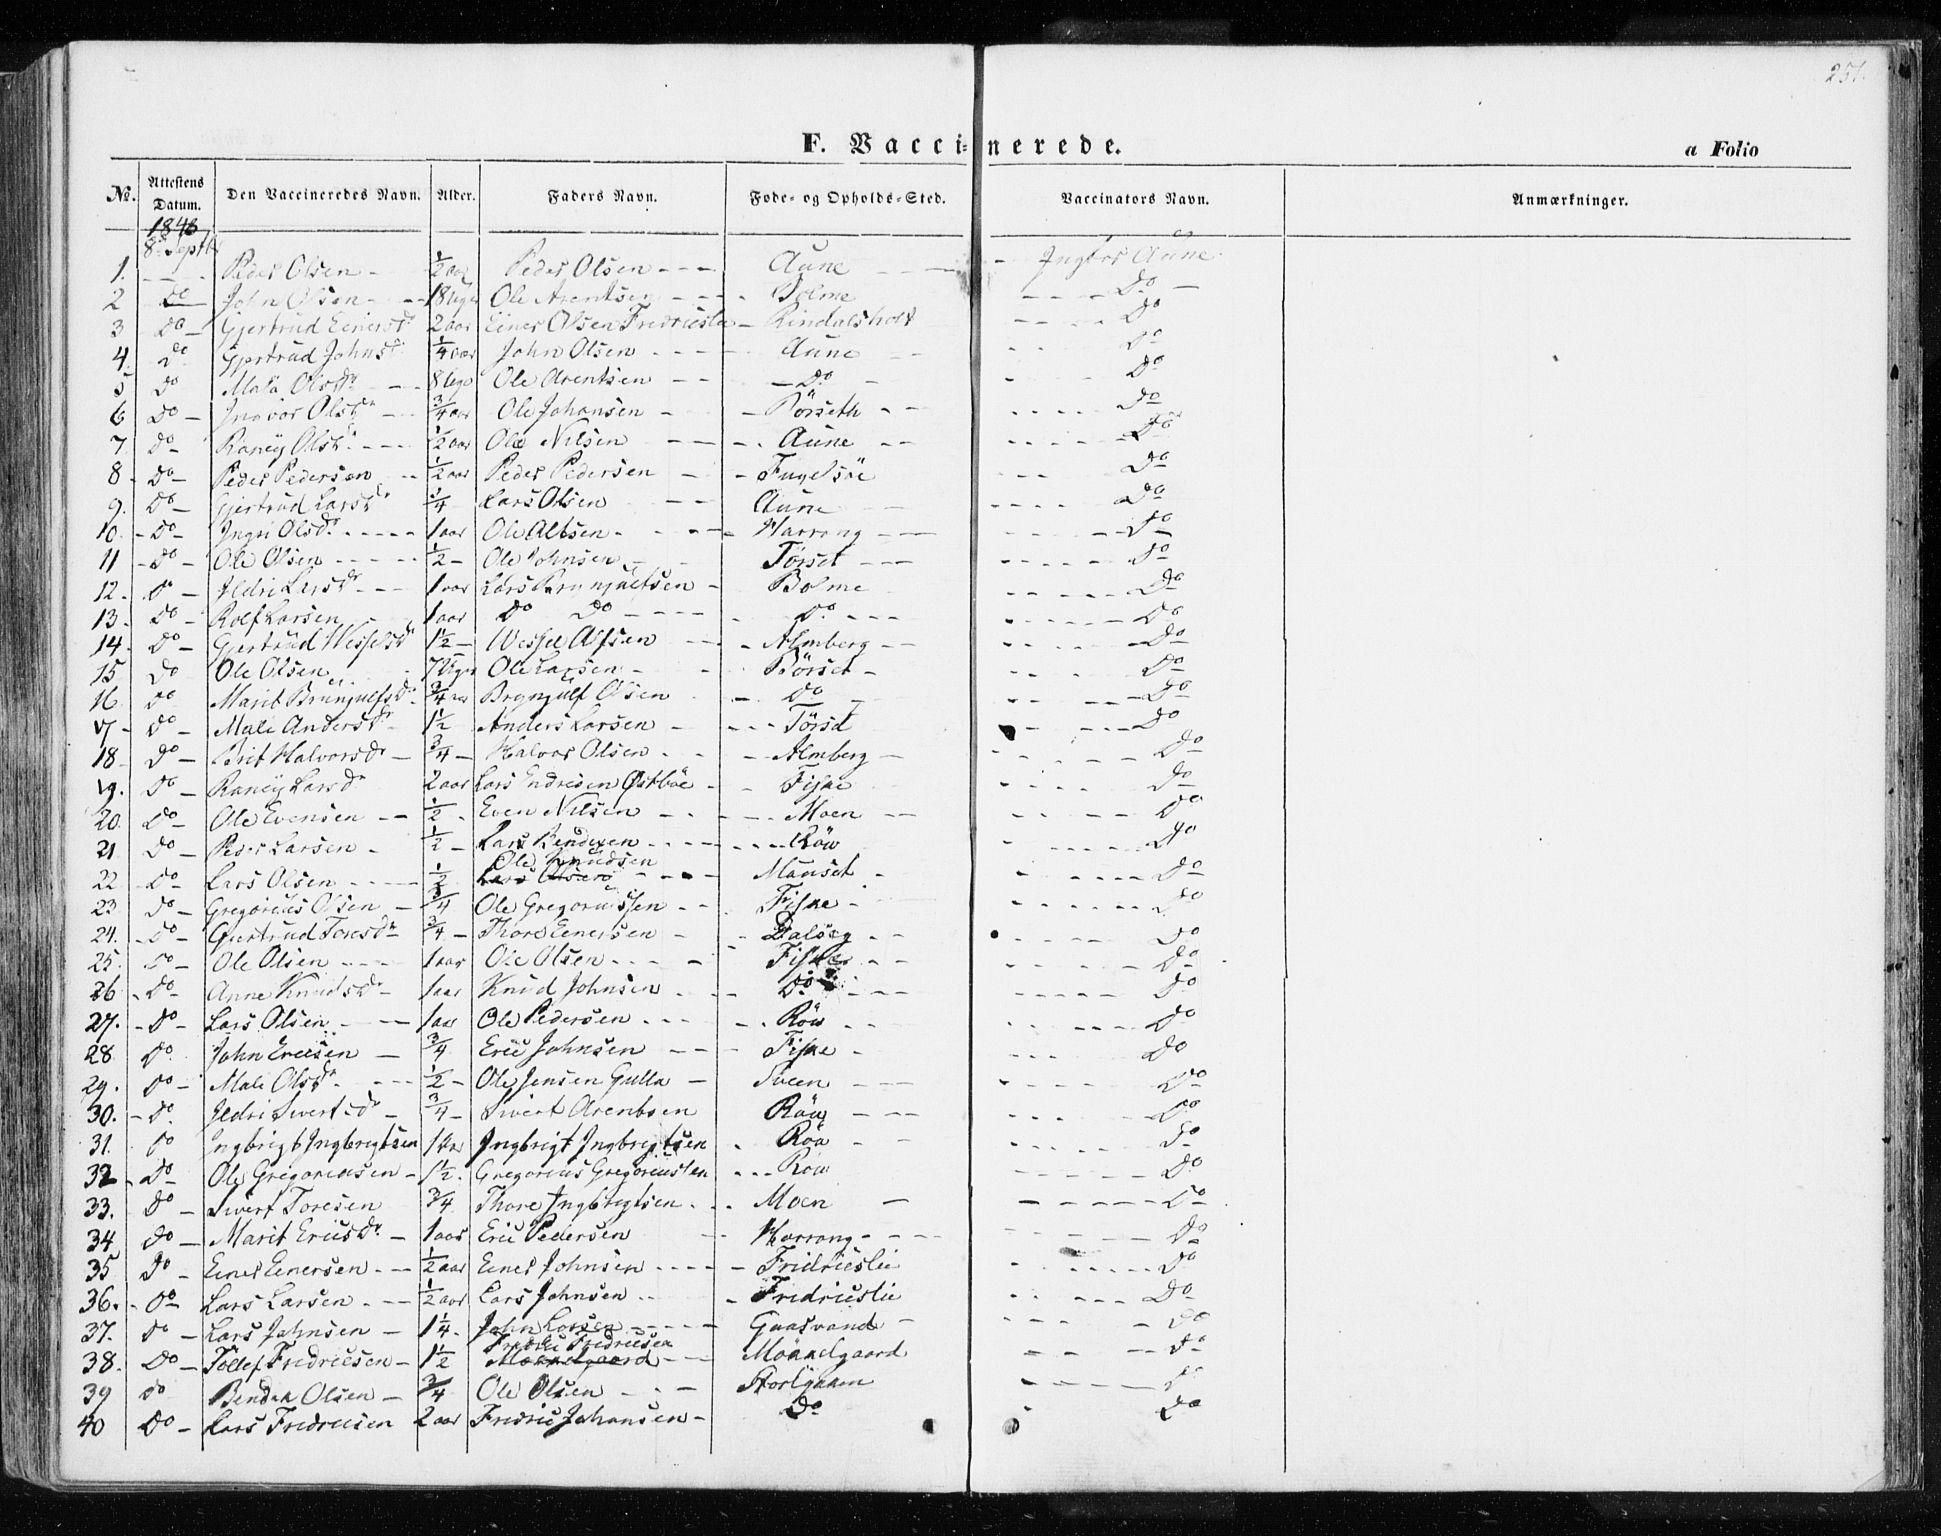 251.
F. Vaccinerede.
a Folio
No. Attestens Datum. Den Vaccineredes Navn. Alder. Faders Navn. Føde- og Opholds-Sted. Vaccinators Navn. Anmærkninger.
1843
8 Septbr
1. Peder Olsen ½ aar Peder Olsen Aune Aune
2 Do John Olsen 18 Uger Ole Arentsen Bolme Do
3 Do Gjertrud Einersdr 2 aar Einer Olsen Fredriceslie Rindalsholt Do
4. Do Gjertrud Johnsdr ¼ aar John Olsen Aune Do
5 Do Olsdr 8 Uger Ole Arentsen Do Do
6 Do Olsdr ¾ aar Ole Johansen Børseth Do
7. Do Olsdr ½ aar Ole Nilsen Aune Do
8 Do Peder Pedersen ½ aar Peder Pedersen Fugelsöe Do
9. Do Gjertrud Larsdr ¾ Lars Olsen Aune Do
10. Do Ingri Olsdr 1 aar Ole Harrang Do
11 Do Ole Olsen ½ Ole Johnsen Törset Do
12. Do Ildri Larsdr 1 aar Lars Brynjulfsen Bolme Do
13. Do Rolf Larsen 1 aar Do Do Do Do
14. Do Gjertrud Wesselsdr 1½ Wessel Almberg Do
15 Do Ole Olsen 7 Uger Ole Larsen Börset Do
16 Do Marit Brunjulfsdr ¾ aar Brynjulf Olsen Do Do
17 Do Mali Andersdr 1½ Anders Larsen Törset Do
18 Do Brit Halvorsdr ¾ Halvor Olsen Almberg Do
19. Do Larsdr 2 aar Lars Endresen Østböe Fiske Do
20. Do Ole Evensen ½ Even Nilsen Moen Do
21 Do Peder Larsen ½ Lars Bendixen Röw Do
22 Do Lars Olsen ½ Ole Knudsen Mauset Do
23 Do Gregorius Olsen ¾ Ole Gregoriussen Fiske Do
24. Do Gjertrud Toresdr ¾ Thore Eenersen Dalseg Do
25 Do Ole Olsen 1 aar Ole Olsen Fiske Do
26 Do Anne Knudsdr 1 aar Knud Johnsen Do Do
27. Do Lars Olsen 1 aar Ole Pedersen Röw Do
28 Do John Ericsen ¾ Eric Johnsen Fiske Do
29. Do Mali Olsdr ½ Ole Jensen Gulla Sveen Do
30. Do Ildri Sivertsdr ¾ Sivert Arentsen Röw Do
31. Do Ingbrigt Ingbrigtsen 1 aar Ingbrigt Ingbrigtsen Röw Do
32 Do Ole Gregoriusen 1½ Gregorius Gregoriussen Röw Do
33. Do Sivert Toresen ¾ Thore Ingbrigtsen Moen Do
34 Do Marit Ericsdr 1 aar Eric Pedersen Harrang Do
35 Do Einer Eenersen ½ aar Einer Johnsen Fridricslie Do
36. Do Lars Larsen ½ aar Lars Johnsen Fridricslie Do
37. Do Lars Johnsen 1¼ John Larsen Gaasvand Do
38. Do Tollef Fredricsen 1½ Fredric Fredricsen Mökkelgaard Do
39 Do Olsen ¾ Ole Olsen Do
40 Do Lars Fredricsen 2 aar Fredric Johansen Do Do